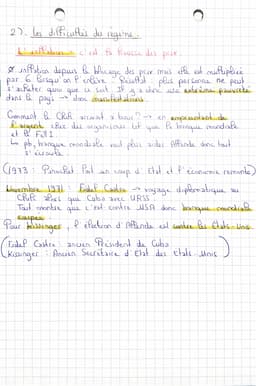 2). Les difficultés du régime.
L'inflation : c'est la hausse des prix.
inflation depuis le blocage des prix mais elle est multipliée
par la lorsqu'on l'enlève. Résultat : plus personne ne peut
s'acheter quoi que ce soit. Il y a donc une extrême pauvreté
dans le pays → donc manifestations.
Comment le Chili survient à ? → en empruntant de
l'argent chez des organismes tel que la banque mondiale
et le FMI
↳ pb, banque mondiale veut plus aider Allende donc tout
s'écroule.
(1973 : Pinochet fait un coup d'Etat et l'économie remonte)
Novembre 1971 : Fidel Castro → voyage diplomatique au
Chili alors que Cuba avec URSS.
Tout montre que c'est contre USA donc banque mondiale
coupée
Pour Kissinger, l'élection d'Allende est contre les Etats-Unis
(Fidel Castro : ancien Président de Cuba
Kissinger : Ancien Secrétaire d'Etat des Etats-Unis)